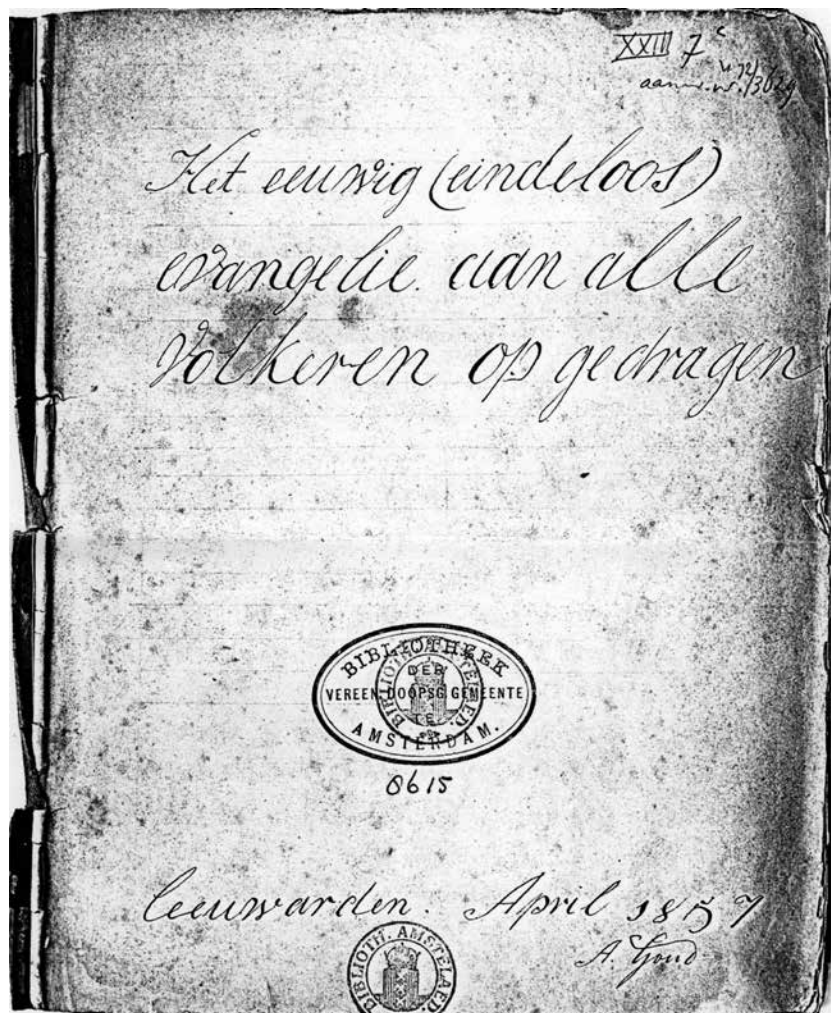 XXIII 7 c
Het eeuwig (eindeloos)
evangelie aan alle
Volkeren op gedragen
BIBLIOTHEEK
DER
VEREEN. DOOPSG. GEMEENTE
TE
AMSTERDAM.
8615
leeuwarden. April 1857
A. Goud
BIBLIOTH. AMSTELAED.